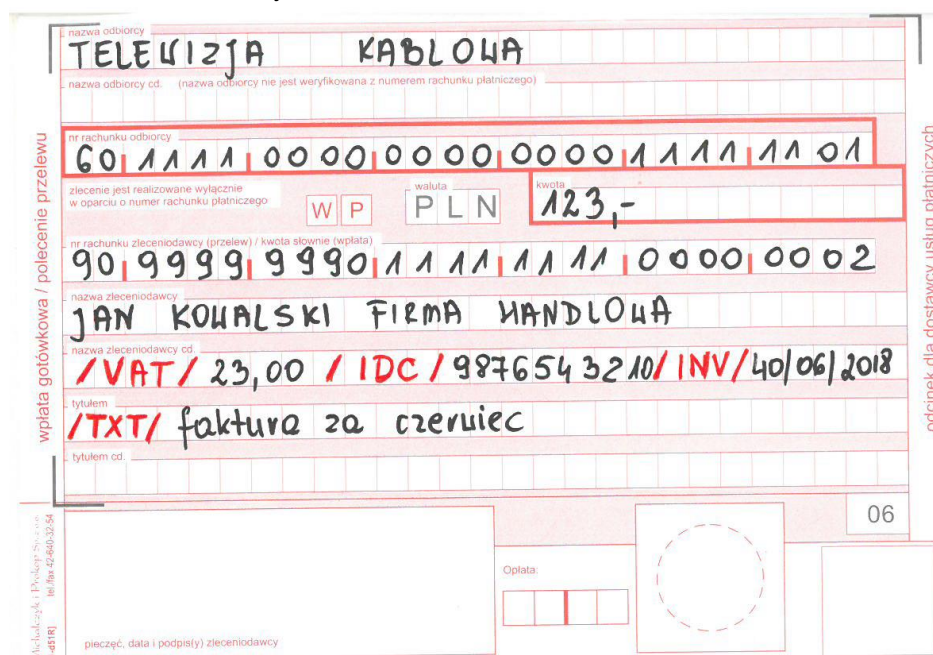 nazwa odbiorcy
TELEWIZJA KABLOWA
nazwa odbiorcy cd. (nazwa odbiorcy nie jest weryfikowana z numerem rachunku płatniczego)
nr rachunku odbiorcy
60 1111 0000 0000 0000 1111 1101
zlecenie jest realizowane wyłącznie
w oparciu o numer rachunku płatniczego
W P
waluta
PLN
kwota
123,-
nr rachunku zleceniodawcy (przelew) / kwota słownie (wpłata)
90 9999 9990 1111 1111 0000 0002
nazwa zleceniodawcy
JAN KOWALSKI FIRMA HANDLOWA
nazwa zleceniodawcy cd.
/VAT/ 23,00 /IDC/ 9876543210 /INV/ 40/06/2018
tytułem
/TXT/ faktura za czerwiec
tytułem cd.
06
Opłata:
pieczęć, data i podpis(y) zleceniodawcy
wpłata gotówkowa / polecenie przelewu
odcinek dla dostawcy usług płatniczych
tel./fax 42-640-32-54
-d51R]